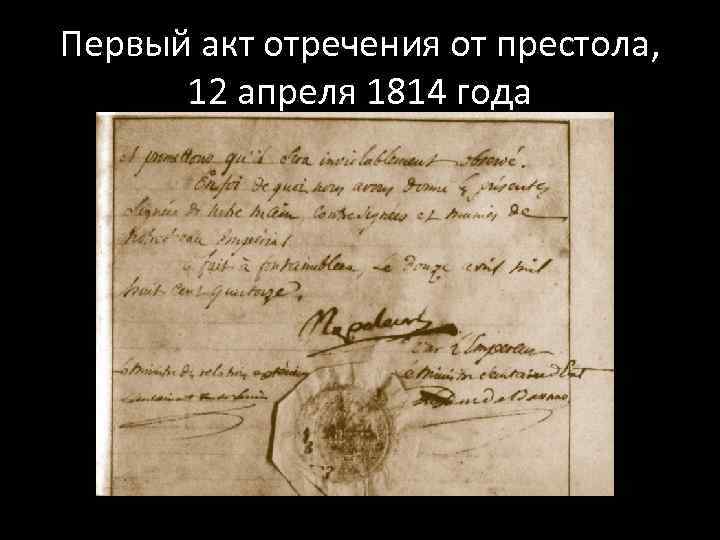 Первый акт отречения от престола,
12 апреля 1814 года
et promettons qu'il sera inviolablement observé.
En foi de quoi nous avons donné les présentes
signées de notre main, contresignées et munies de
notre sceau Impérial.
fait à fontainebleau, le douze avril mil
huit cent quatorze.
Napoleon
Par l'Empereur
Le ministre des relations extérieures
Le Ministre Secrétaire d'Etat
Le Duc de Bassano